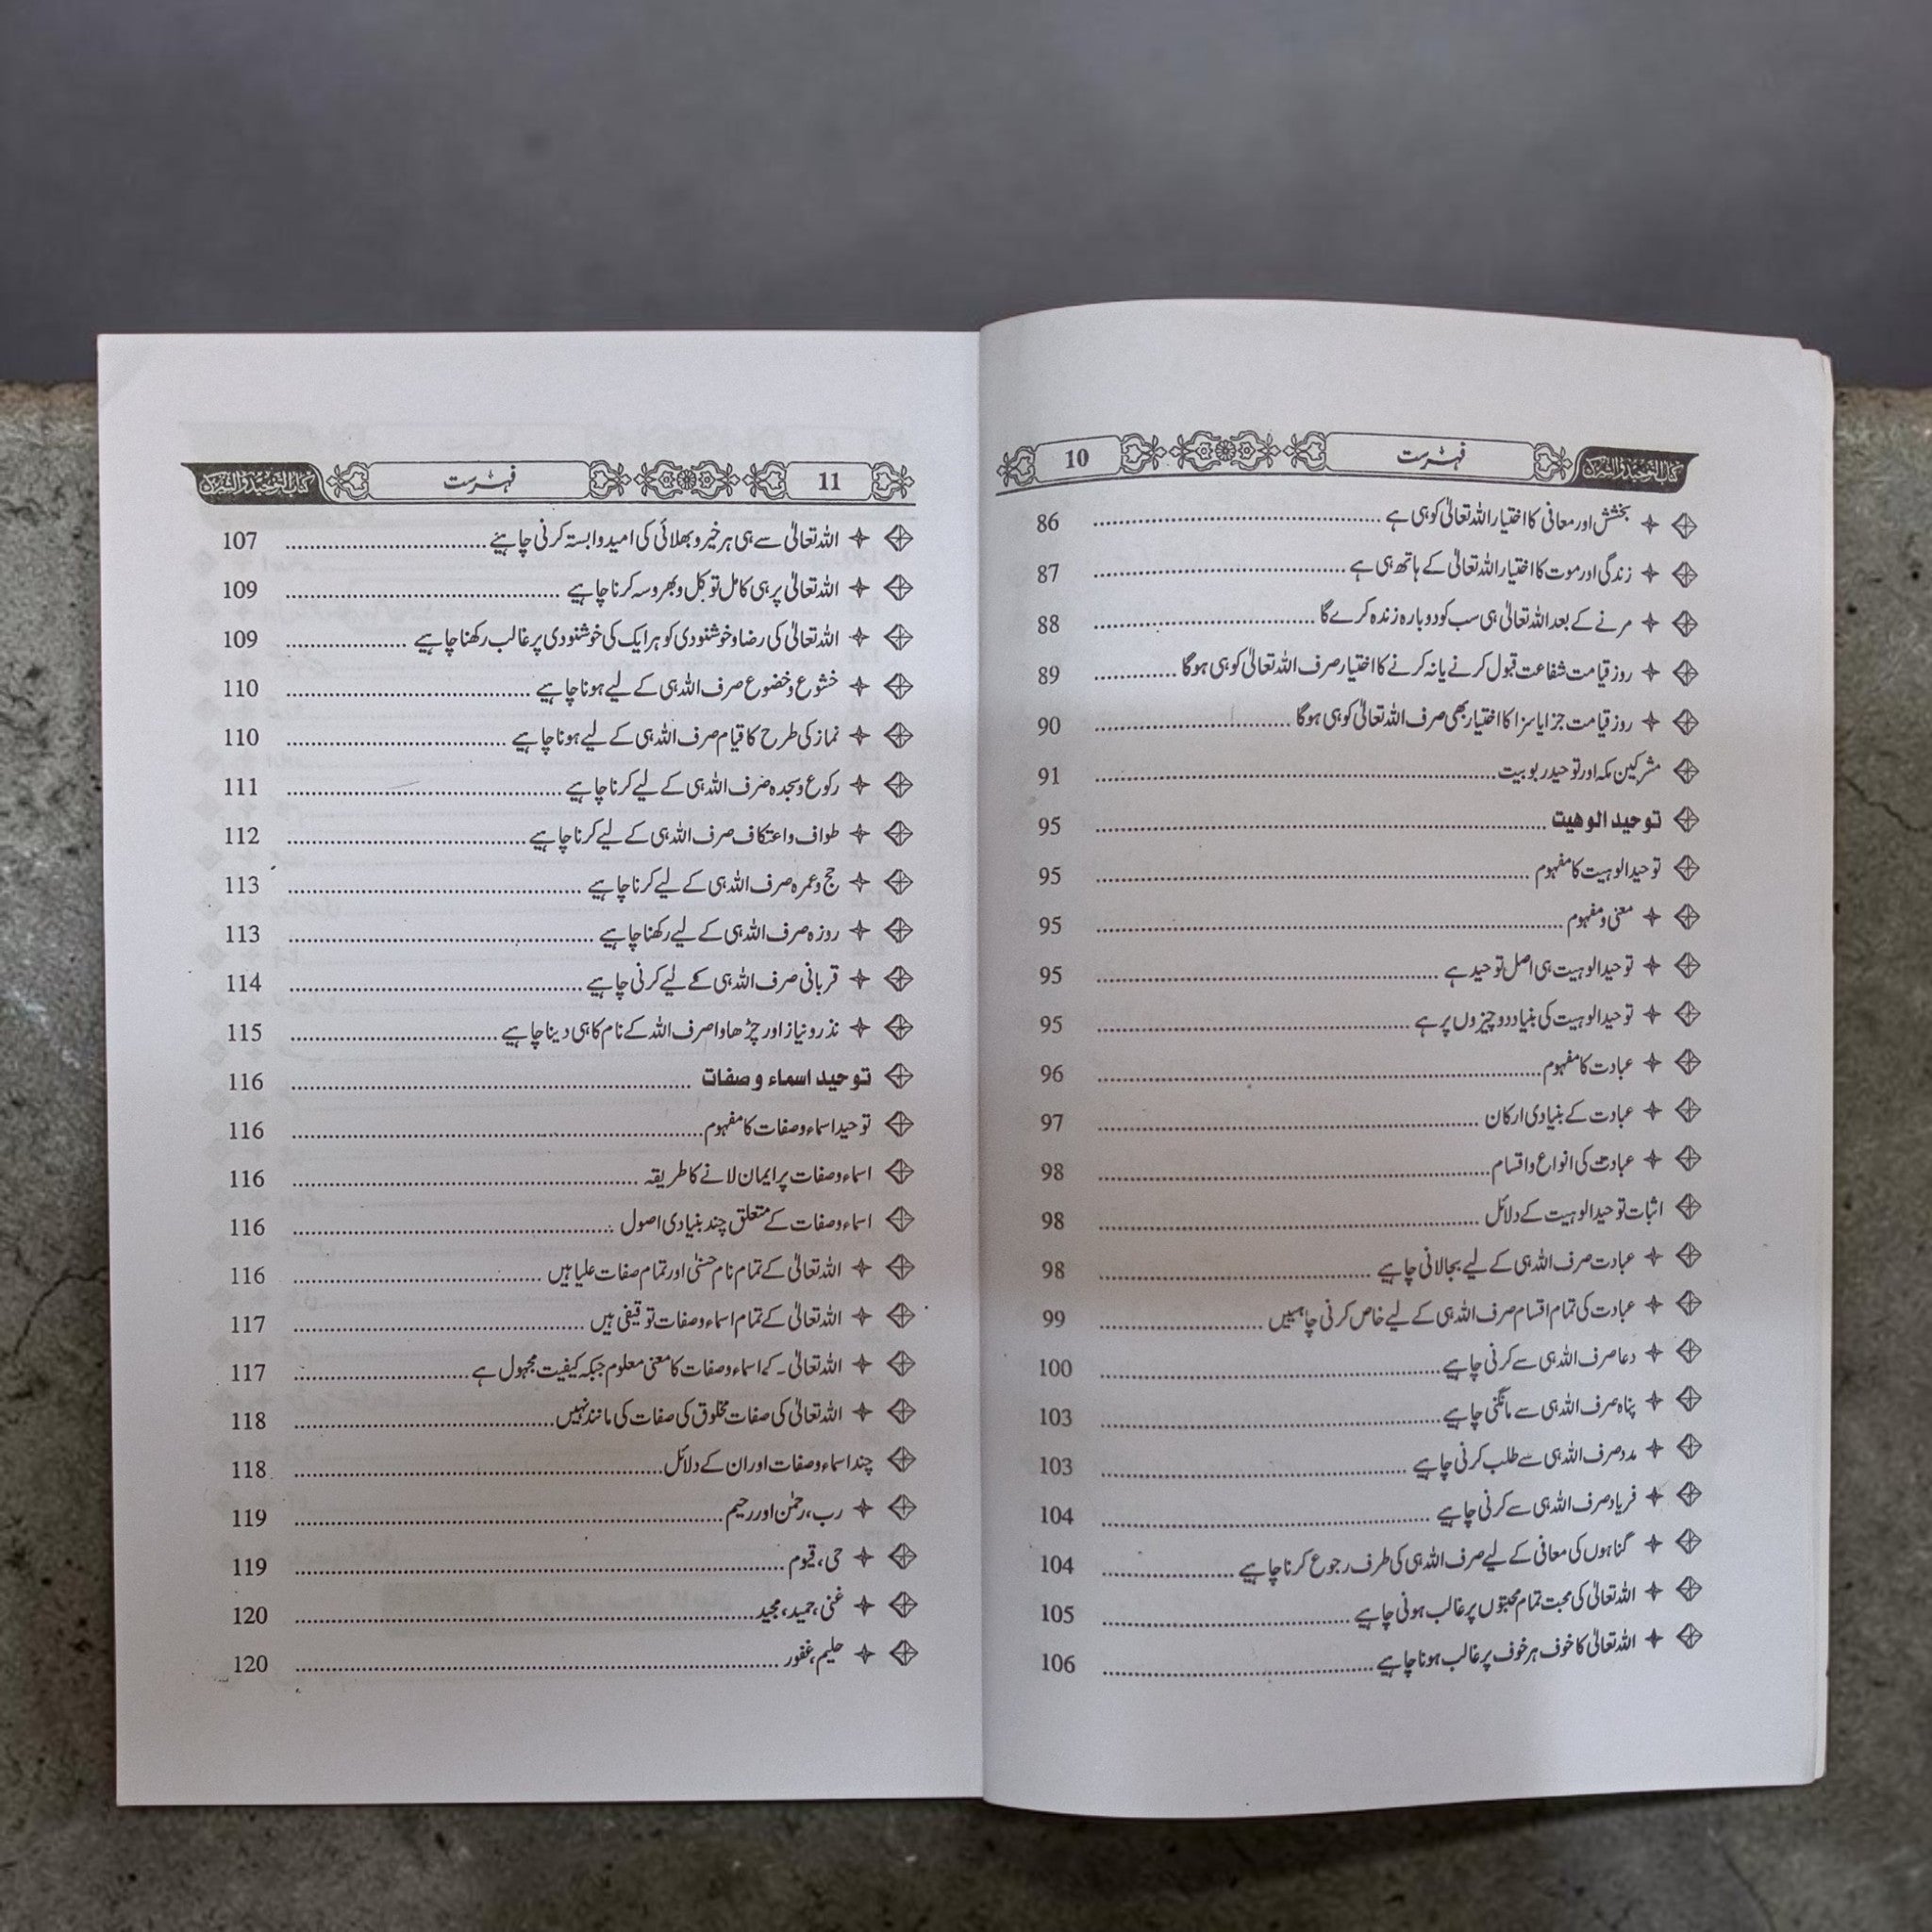 كتاب التوحيد والشرك
فہرست
10
بخشش اور معافی کا اختیار اللہ تعالیٰ کو ہی ہے ........ 86
زندگی اور موت کا اختیار اللہ تعالیٰ کے ہاتھ ہی ہے ........ 87
مرنے کے بعد اللہ تعالیٰ ہی سب کو دوبارہ زندہ کرے گا ........ 88
روز قیامت شفاعت قبول کرنے یا نہ کرنے کا اختیار صرف اللہ تعالیٰ کو ہی ہوگا ........ 89
روز قیامت جزا یا سزا کا اختیار بھی صرف اللہ تعالیٰ کو ہی ہوگا ........ 90
مشرکین مکہ اور توحید ربوبیت ........ 91
توحید الوهیت ........ 95
توحید الوہیت کا مفہوم ........ 95
معنی و مفہوم ........ 95
توحید الوہیت ہی اصل توحید ہے ........ 95
توحید الوہیت کی بنیاد دو چیزوں پر ہے ........ 95
عبادت کا مفہوم ........ 96
عبادت کے بنیادی ارکان ........ 97
عبادت کی انواع و اقسام ........ 98
اثبات توحید الوہیت کے دلائل ........ 98
عبادت صرف اللہ ہی کے لیے بجالانی چاہیے ........ 98
عبادت کی تمام اقسام صرف اللہ ہی کے لیے خاص کرنی چاہییں ........ 99
دعا صرف اللہ ہی سے کرنی چاہیے ........ 100
پناہ صرف اللہ ہی سے مانگنی چاہیے ........ 103
مدد صرف اللہ ہی سے طلب کرنی چاہیے ........ 103
فریاد صرف اللہ ہی سے کرنی چاہیے ........ 104
گناہوں کی معافی کے لیے صرف اللہ ہی کی طرف رجوع کرنا چاہیے ........ 104
اللہ تعالیٰ کی محبت تمام محبتوں پر غالب ہونی چاہیے ........ 105
اللہ تعالیٰ کا خوف ہر خوف پر غالب ہونا چاہیے ........ 106
كتاب التوحيد والشرك
فہرست
11
اللہ تعالیٰ سے ہی ہر خیر و بھلائی کی امید وابستہ کرنی چاہیے ........ 107
اللہ تعالیٰ پر ہی کامل توکل و بھروسہ کرنا چاہیے ........ 109
اللہ تعالیٰ کی رضا و خوشنودی کو ہر ایک کی خوشنودی پر غالب رکھنا چاہیے ........ 109
خشوع و خضوع صرف اللہ ہی کے لیے ہونا چاہیے ........ 110
نماز کی طرح کا قیام صرف اللہ ہی کے لیے ہونا چاہیے ........ 110
رکوع و سجدہ صرف اللہ ہی کے لیے کرنا چاہیے ........ 111
طواف و اعتکاف صرف اللہ ہی کے لیے کرنا چاہیے ........ 112
حج و عمرہ صرف اللہ ہی کے لیے کرنا چاہیے ........ 113
روزہ صرف اللہ ہی کے لیے رکھنا چاہیے ........ 113
قربانی صرف اللہ ہی کے لیے کرنی چاہیے ........ 114
نذر و نیاز اور چڑھاوا صرف اللہ کے نام کا ہی دینا چاہیے ........ 115
توحید اسماء و صفات ........ 116
توحید اسماء و صفات کا مفہوم ........ 116
اسماء و صفات پر ایمان لانے کا طریقہ ........ 116
اسماء و صفات کے متعلق چند بنیادی اصول ........ 116
اللہ تعالیٰ کے تمام نام حسنٰی اور تمام صفات علیا ہیں ........ 116
اللہ تعالیٰ کے تمام اسماء و صفات توقیفی ہیں ........ 117
اللہ تعالیٰ۔ کے اسماء و صفات کا معنی معلوم جبکہ کیفیت مجہول ہے ........ 117
اللہ تعالیٰ کی صفات مخلوق کی صفات کی مانند نہیں ........ 118
چند اسماء و صفات اور ان کے دلائل ........ 118
رب، رحمٰن اور رحیم ........ 119
حی، قیوم ........ 119
غنی، حمید، مجید ........ 120
حلیم، غفور ........ 120